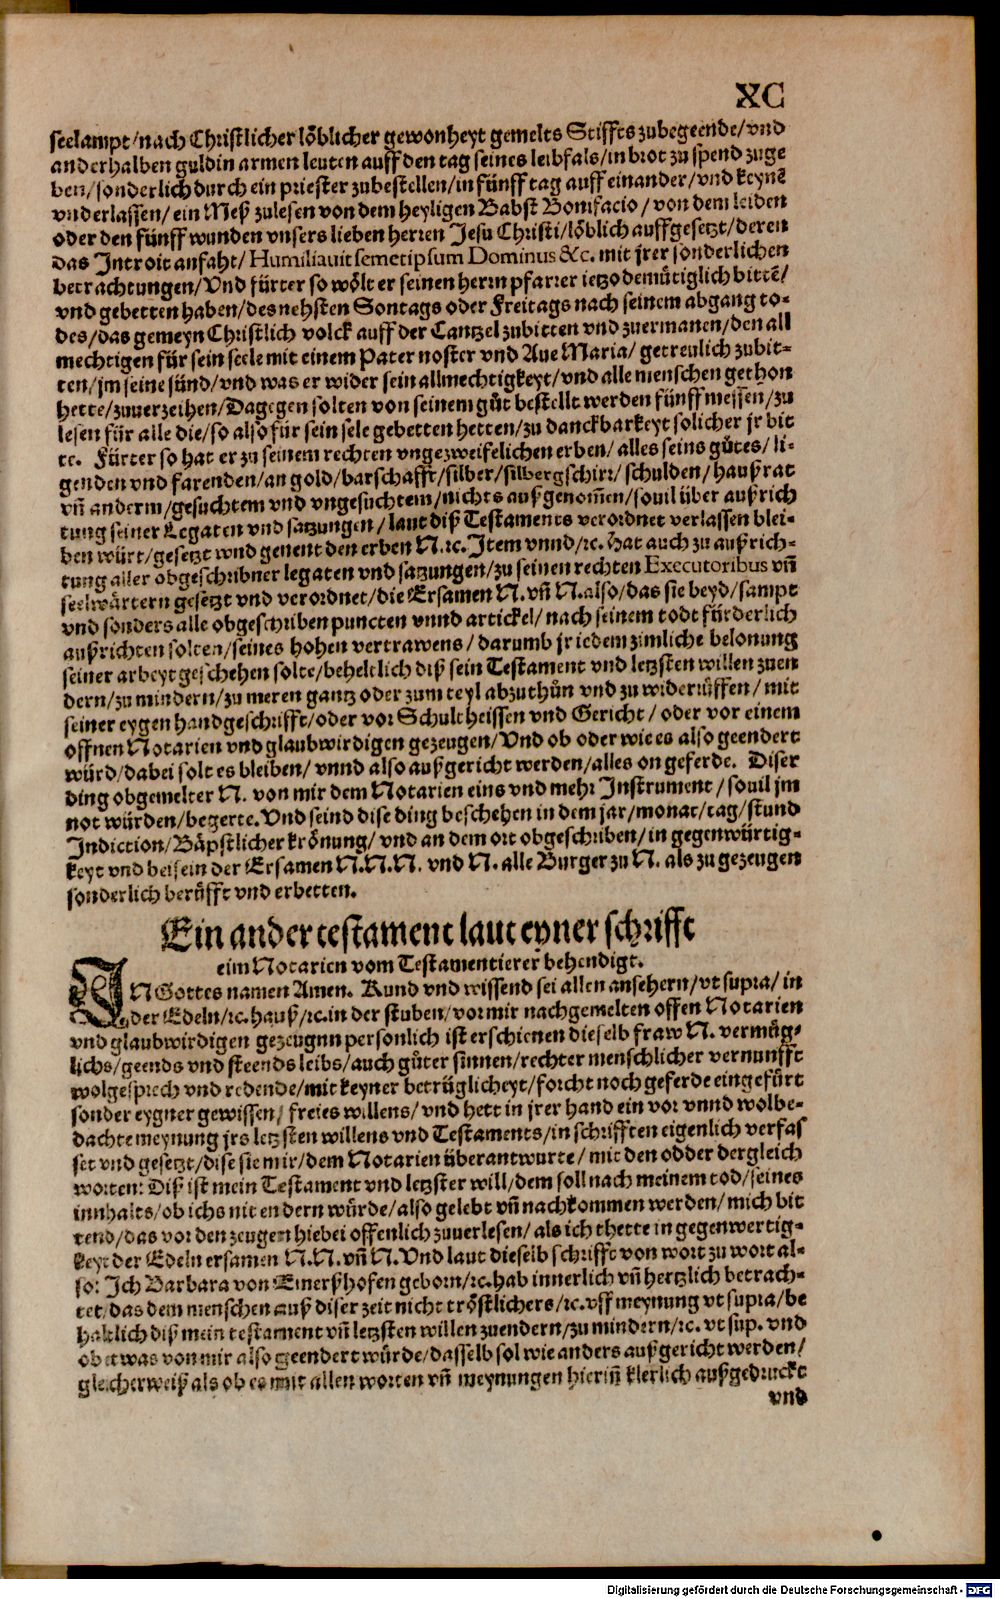 XC
seelampt/nach Christlicher löblicher gewonheyt gemelts Stiffts zubegeende/vnd
anderhalben guldin armen leuten auff den tag seines leibfals/in brot zu spend zuge
ben/sonderlich durch ein priester zubestellen/in fünff tag auff einander/vnd keynē
vnderlassen/ein Meß zulesen von dem heyligen Babst Bonifacio/von dem leiden
oder den fünff wunden vnsers lieben herren Jesu Christi/löblich auffgesetzt/deren
das Introit anfaht/Humiliauit semetipsum Dominus &c. mit jrer sonderlichen
betrachtungen/Vnd fürter so wölt er seinen herrn pfarrer ietzo demütiglich bittē/
vnd gebetten haben/des nehsten Sontags oder Freitags nach seinem abgang to-
des/das gemeyn Christlich volck auff der Cantzel zubitten vnd zuermanen/den all
mechtigen für sein seele mit einem Pater noster vnd Aue Maria/getreulich zubit-
ten/jm seine sünd/vnd was er wider sein allmechtigkeyt/vnd alle menschen gethon
hette/zuuerzeihen/Dagegen solten von seinem gůt bestellt werden fünff messen/zu
lesen für alle die/so also für sein sele gebetten hetten/zu danckbarkeyt solicher jr bit
te. Fürter so hat er zu seinem rechten vngezweifelichen erben/alles seins gůtes/li-
genden vnd farenden/an gold/barschafft/silber/silbergschirr/schulden/haußrat
vñ anderm/gesuchtem vnd vngesuchtem/nichts außgenom̄en/souil über außrich
tung seiner Legaten vnd satzungen/laut diß Testaments verordnet verlassen blei-
ben würt/gesetzt vnd genent den erben N.ꝛc. Item vnnd/ꝛc. hat auch zu außrich-
tung aller obgeschribner legaten vnd satzungen/zu seinen rechten Executoribus vñ
seelwärtern gesetzt vnd verordnet/die Ersamen N. vñ N. also/das sie beyd/sampt
vnd sonders alle obgeschriben puncten vnnd artickel/nach seinem todt fürderlich
außrichten solten/seines hohen vertrawens/darumb jr iedem zimliche belonung
seiner arbeyt geschehen solte/beheltlich diß sein Testament vnd letzsten willen zuen
dern/zu mindern/zu meren gantz oder zum teyl abzuthůn vnd zu widerrůffen/mit
seiner eygen handgeschrifft/oder vor Schultheissen vnd Gericht/oder vor einem
offnen Notarien vnd glaubwirdigen gezeugen/Vnd ob oder wie es also geendert
würd/dabei solt es bleiben/vnnd also außgericht werden/alles on geferde. Diser
ding obgemelter N. von mir dem Notarien eins vnd mehr Instrument/souil jm
not würden/begerte. Vnd seind dise ding beschehen in dem jar/monat/tag/stund
Indiction/Bäpstlicher krönung/vnd an dem ort obgeschriben/in gegenwürtig-
keyt vnd beisein der Ersamen N.N.N. vnd N. alle Burger zu N. als zu gezeugen
sonderlich berůfft vnd erbetten.
Ein ander testament laut eyner schrifft
eim Notarien vom Testamentierer behendigt.
IN Gottes namen Amen. Kund vnd wissend sei allen ansehern/vt supra/in
der Edeln/ꝛc. hauß/ꝛc. in der stuben/vor mir nachgemelten offen Notarien
vnd glaubwirdigen gezeugnn personlich ist erschienen dieselb fraw N. vermüg-
lichs/geends vnd steends leibs/auch gůter sinnen/rechter menschlicher vernunfft
wolgesprech vnd redende/mit keyner betrüglicheyt/forcht noch geferde eingefürt
sonder eygner gewissen/freies willens/vnd hett in jrer hand ein vor vnnd wolbe-
dachte meynung jrs letzsten willens vnd Testaments/in schrifften eigenlich verfas
set vnd gesetzt/dise sie mir/dem Notarien überantwurte/mit den odder dergleich
worten: Diß ist mein Testament vnd letzster will/dem soll nach meinem tod/seines
innhalts/ob ichs nit endern würde/also gelebt vñ nachkommen werden/mich bit
tend/das vor den zeugen hiebei offenlich zuuerlesen/als ich thette in gegenwertig-
keyt der Edeln ersamen N.N. vñ N. Vnd laut dieselb schrifft von wort zu wort al-
so: Ich Barbara von Einerßhofen geborn/ꝛc. hab innerlich vñ hertzlich betrach-
tet/das dem menschen auß diser zeit nicht tröstlichers/ꝛc. vff meynung vt supra/be
haltlich diß mein testament vñ letzsten willen zuendern/zu mindern/ꝛc. vt sup. vnd
ob etwas von mir also geendert würde/dasselb sol wie anders außgericht werden/
gleicherweiß als ob es mit allen worten vñ meynungen hierin̄ klerlich außgedruckt
vnd
Digitalisierung gefördert durch die Deutsche Forschungsgemeinschaft - DFG